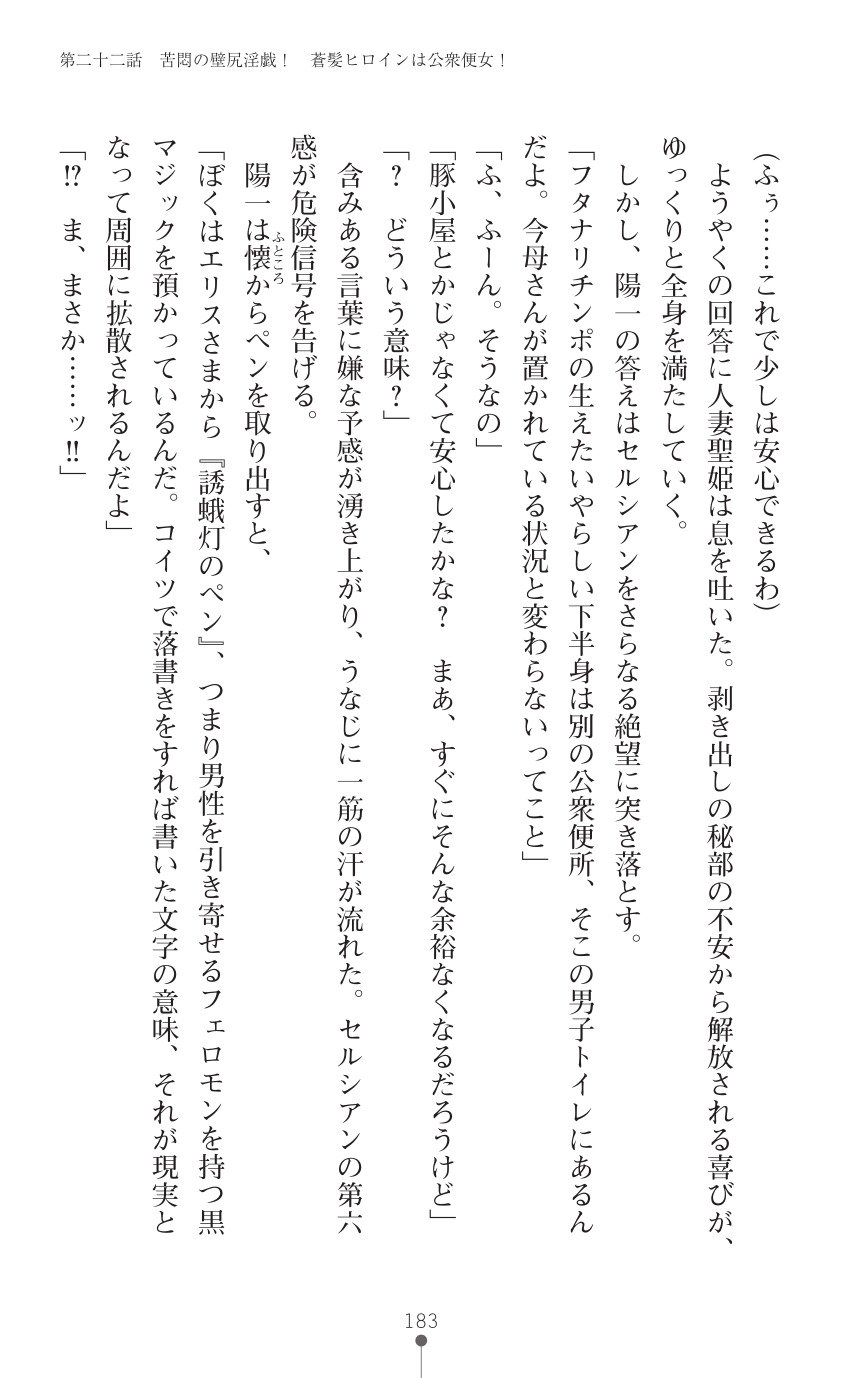 第二十二話　苦悶の壁尻淫戯！　蒼髪ヒロインは公衆便女！
（ふぅ……これで少しは安心できるわ）
　ようやくの回答に人妻聖姫は息を吐いた。剥き出しの秘部の不安から解放される喜びが、
ゆっくりと全身を満たしていく。
　しかし、陽一の答えはセルシアンをさらなる絶望に突き落とす。
「フタナリチンポの生えたいやらしい下半身は別の公衆便所、そこの男子トイレにあるん
だよ。今母さんが置かれている状況と変わらないってこと」
「ふ、ふーん。そうなの」
「豚小屋とかじゃなくて安心したかな？　まあ、すぐにそんな余裕なくなるだろうけど」
「？　どういう意味？」
　含みある言葉に嫌な予感が湧き上がり、うなじに一筋の汗が流れた。セルシアンの第六
感が危険信号を告げる。
　陽一は懐ふところからペンを取り出すと、
「ぼくはエリスさまから『誘蛾灯のペン』、つまり男性を引き寄せるフェロモンを持つ黒
マジックを預かっているんだ。コイツで落書きをすれば書いた文字の意味、それが現実と
なって周囲に拡散されるんだよ」
「!?　ま、まさか……ッ!!」
183